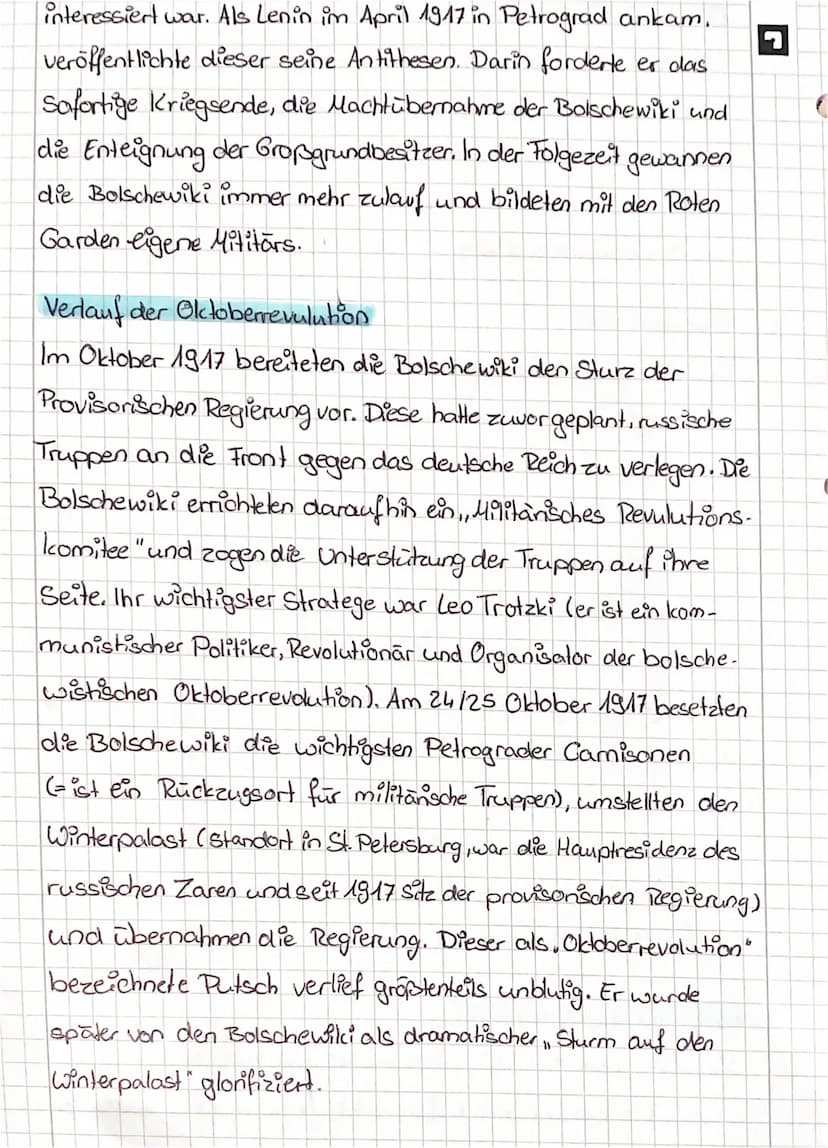 interessiert war. Als Lenin im April 1917 in Petrograd ankam,
veröffentlichte dieser seine Antithesen. Darin forderte er das
sofortige Kriegsende, die Machtübernahme der Bolschewiki und
die Enteignung der Großgrundbesitzer. In der Folgezeit gewannen
die Bolschewiki immer mehr zulauf und bildeten mit den Roten
Garden eigene Militärs.
Verlauf der Oktoberrevulution
Im Oktober 1917 bereiteten die Bolschewiki den Sturz der
Provisorischen Regierung vor. Diese hatte zuvor geplant, russische
Truppen an die Front gegen das deutsche Reich zu verlegen. Die
Bolschewiki errichteten daraufhin ein „Militärisches Revulutions-
komitee" und zogen die Unterstützung der Truppen auf ihre
Seite. Ihr wichtigster Stratege war Leo Trotzki (er ist ein kom-
munistischer Politiker, Revolutionär und Organisator der bolsche-
wistischen Oktoberrevolution). Am 24/25 Oktober 1917 besetzten
die Bolschewiki die wichtigsten Petrograder Garnisonen
(= ist ein Rückzugsort für militärische Truppen), umstellten den
Winterpalast (Standort in St. Petersburg, war die Hauptresidenz des
russischen Zaren und seit 1917 Sitz der provisorischen Regierung)
und übernahmen die Regierung. Dieser als „Oktoberrevolution"
bezeichnete Putsch verlief größtenteils unblutig. Er wurde
später von den Bolschewiki als dramatischer „Sturm auf den
Winterpalast" glorifiziert.